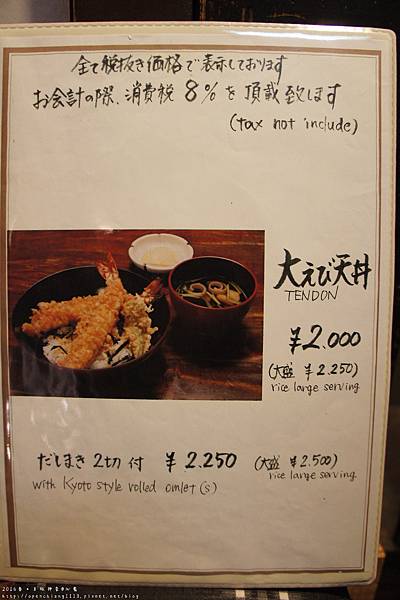 全て税抜き価格で表示しております
お会計の際、消費税 8% を 頂戴致します
(tax not include)
大えび天丼
TENDON
¥2.000
(大盛 ¥2.250)
rice large serving
だしまき 2切 付 ¥2.250 (大盛 ¥2.500)
with Kyoto style rolled omlet(s) rice large serving
http://openchiang1113.pixnet.net/blog